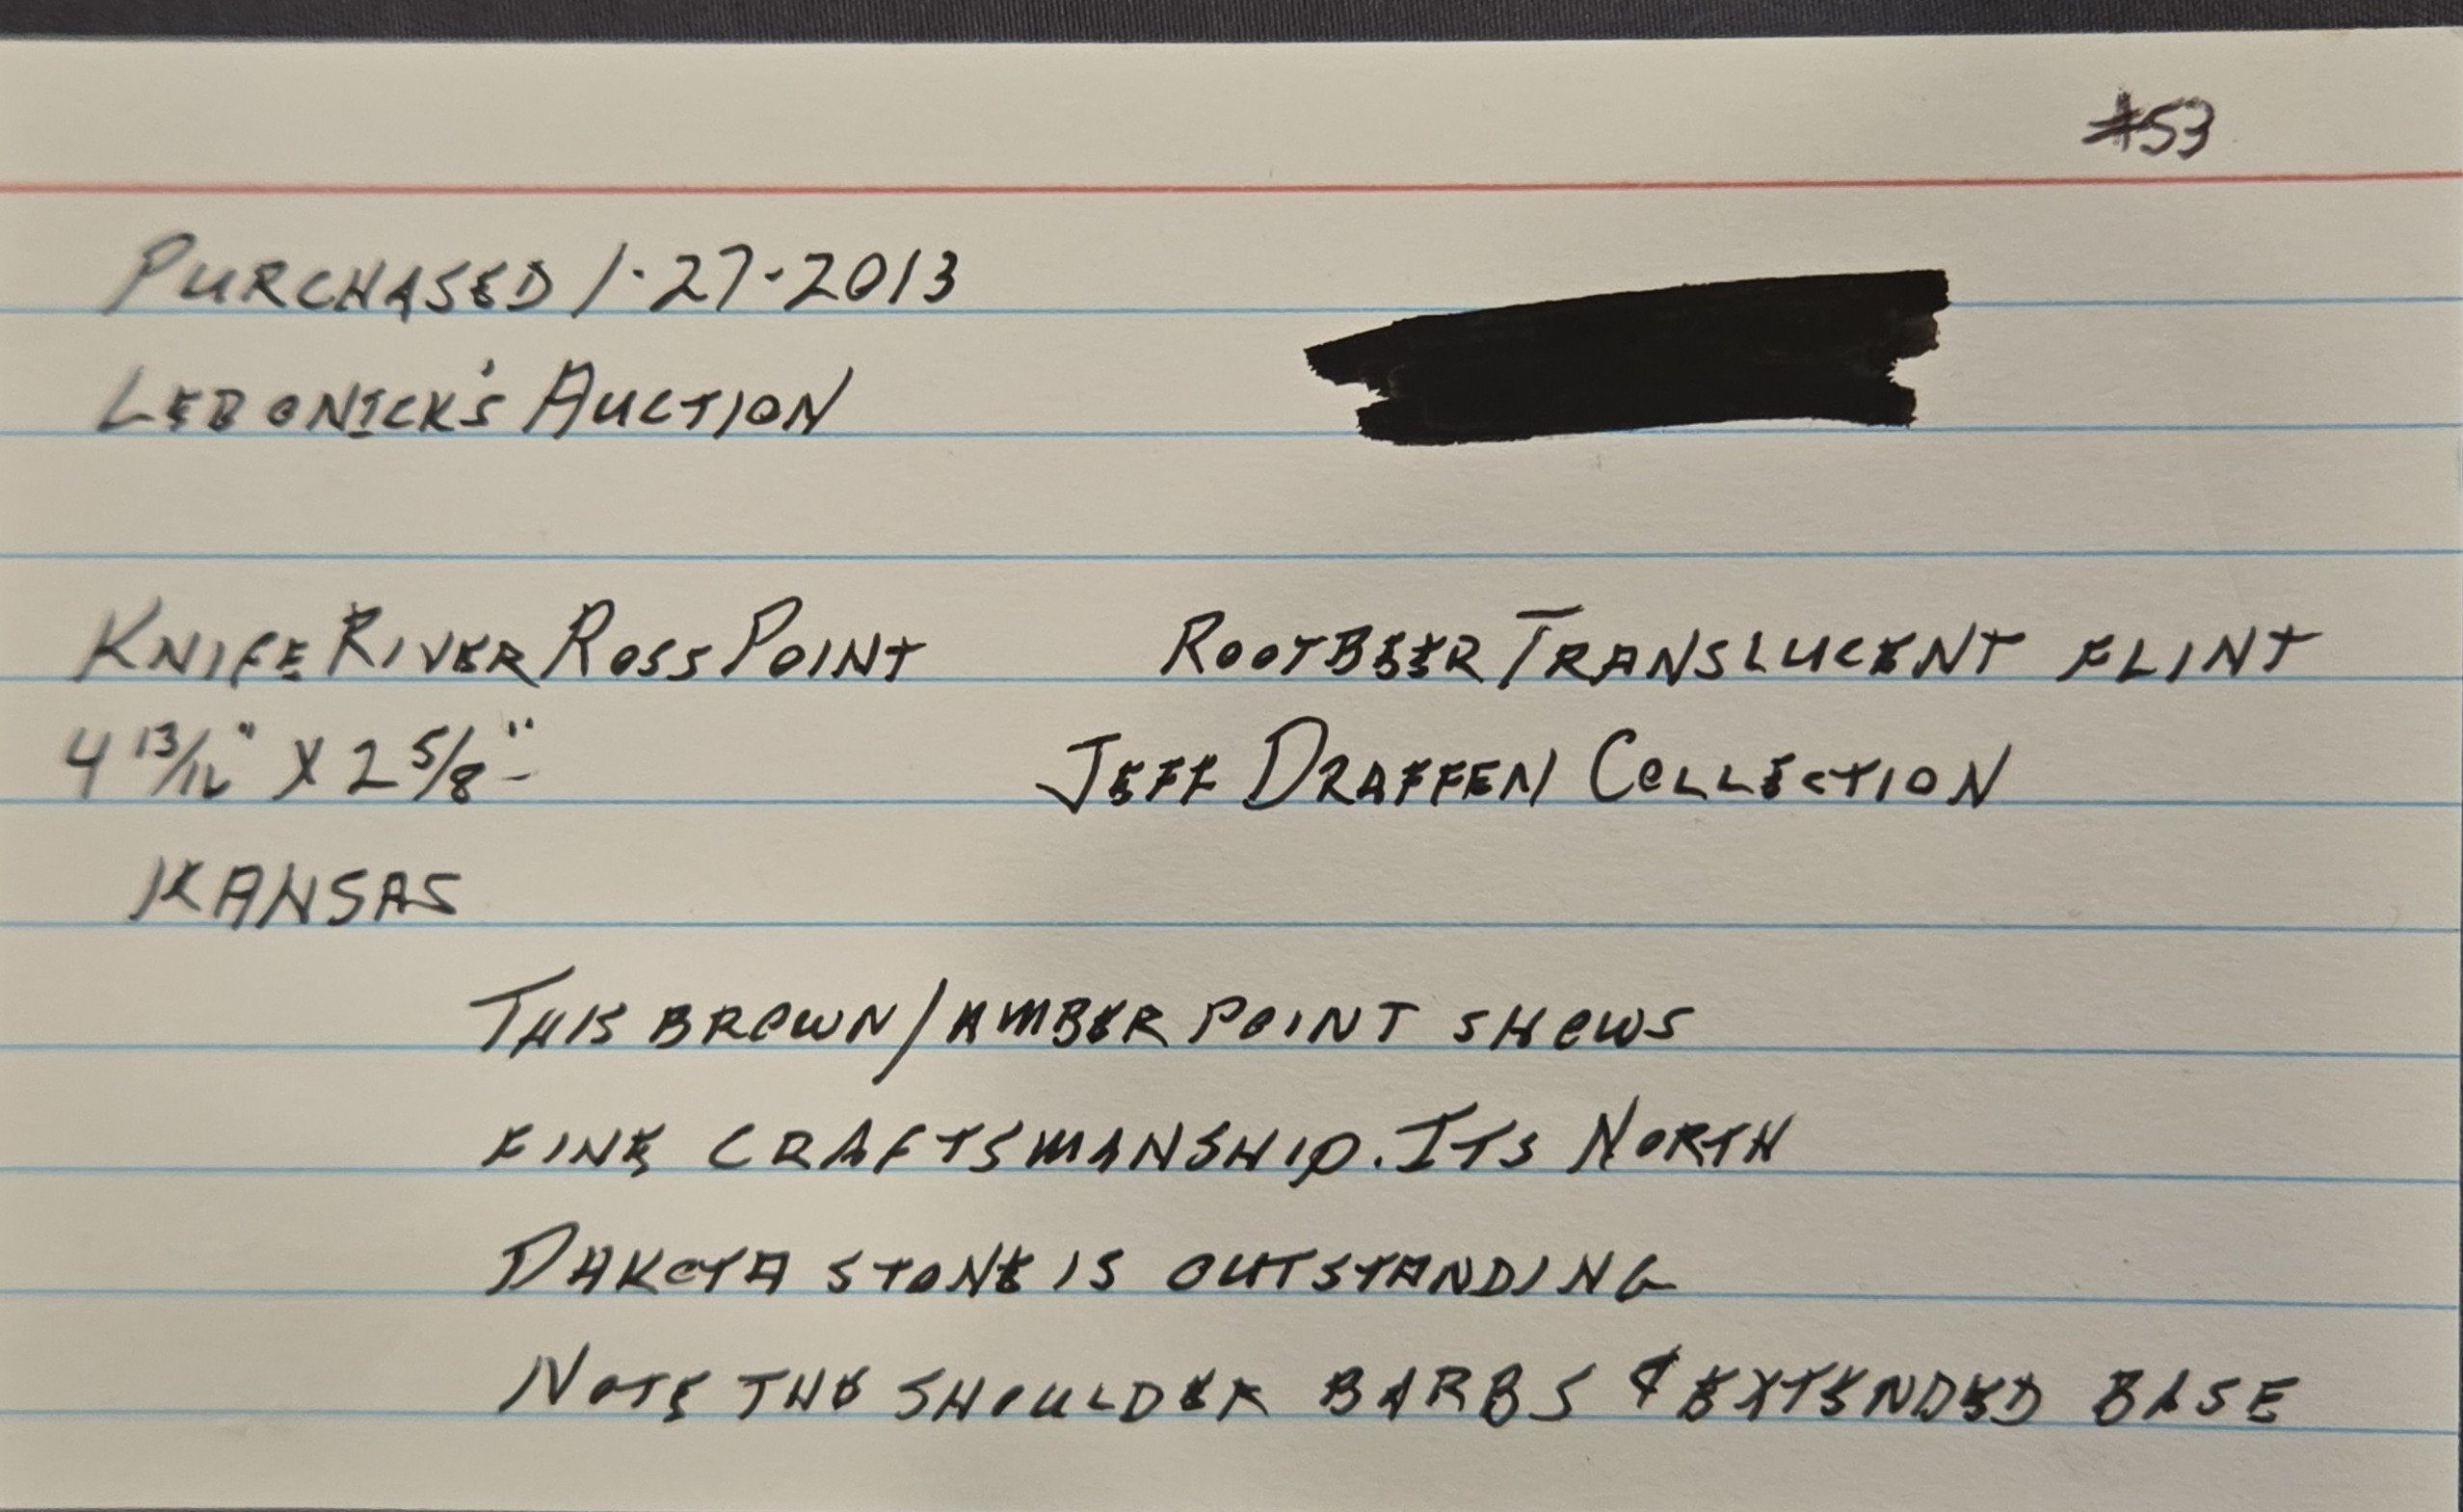 #53
PURCHASED 1-27-2013
LEBONICK'S AUCTION
KNIFE RIVER ROSS POINT ROOTBEER TRANSLUCENT FLINT
4 13/16" X 2 5/8" JEFF DRAFFEN COLLECTION
KANSAS
THIS BROWN/AMBER POINT SHOWS
FINE CRAFTSMANSHIP. ITS NORTH
DAKOTA STONE IS OUTSTANDING
NOTE THE SHOULDER BARBS & EXTENDED BASE